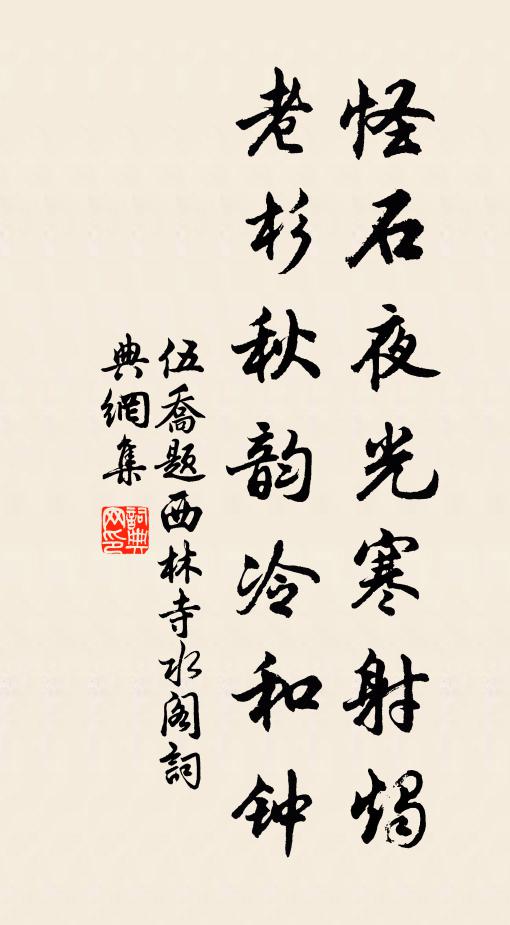 怪石夜光寒射烛
老杉秋韵冷和钟
伍喬題西林寺水阁詞
典網集
詞典网印